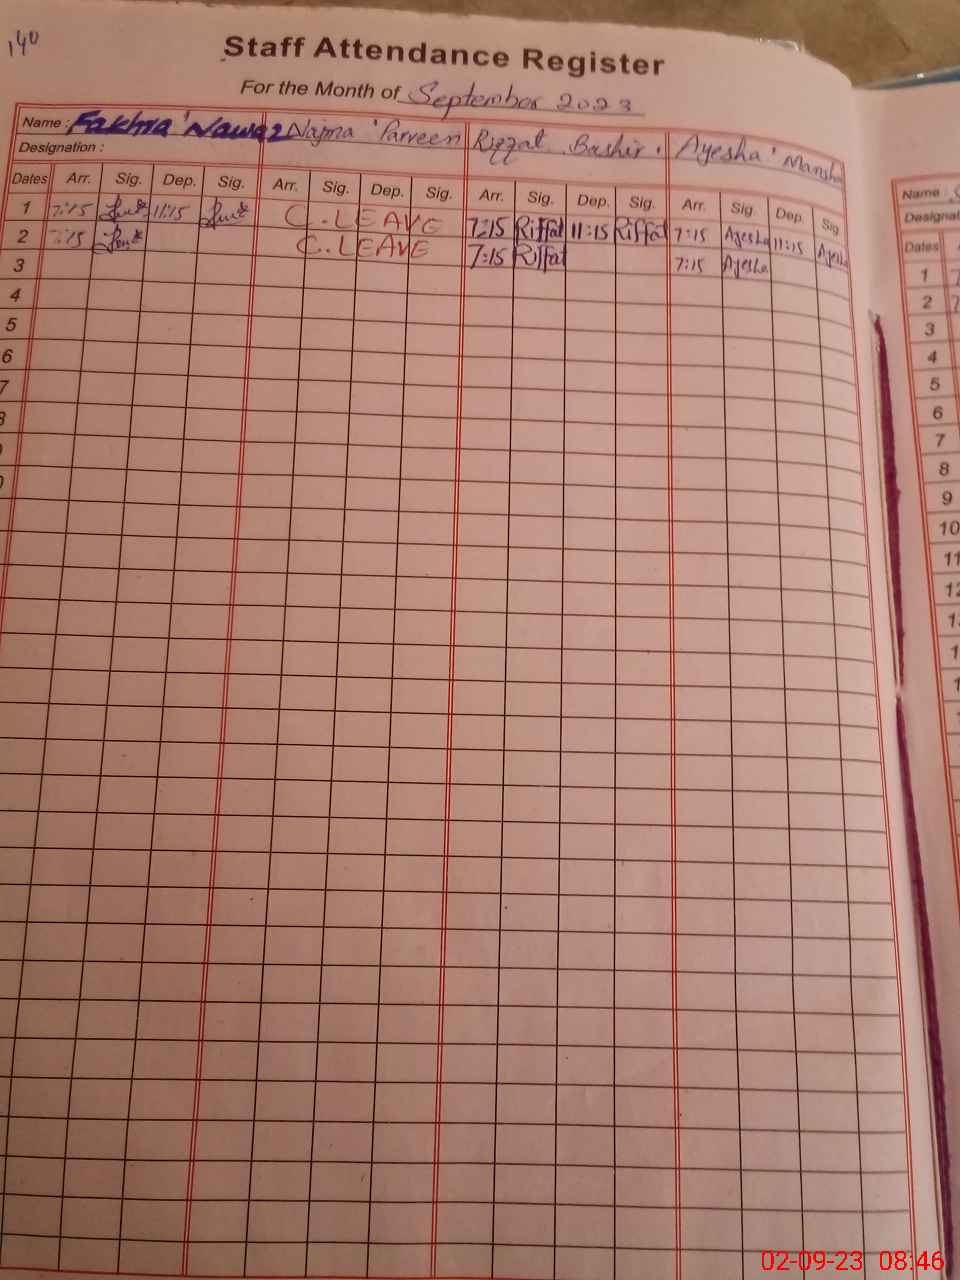 140
Staff Attendance Register
For the Month of September 2023
Name : Fakhra Nawaz Najma Parveen Riffat Bashir Ayesha Mansha
Designation :
Dates Arr. Sig. Dep. Sig. Arr. Sig. Dep. Sig. Arr. Sig. Dep. Sig. Arr. Sig. Dep. Sig
1 7:15 11:15 C.LEAVE 7:15 Riffat 11:15 Riffat 7:15 Ayesha 11:15 Ayesha
2 7:15 C.LEAVE 7:15 Riffat 7:15 Ayesha
3
4
5
6
7
Name :
Dates
1
2
3
4
5
6
7
8
9
10
11
02-09-23 08:46